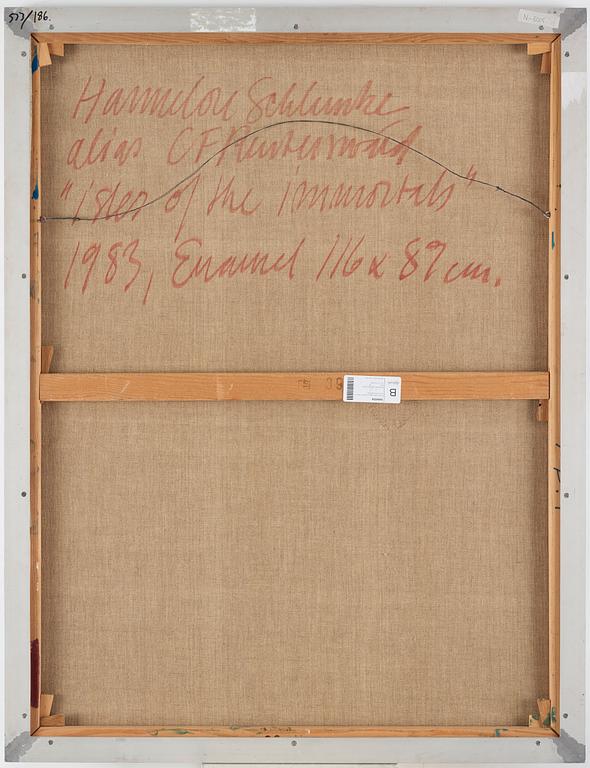 577/186.
Hannelore Schlunke
alias CF Reuterswärd
"isles of the immortals"
1983, Enamel 116 x 89 cm.
38
B